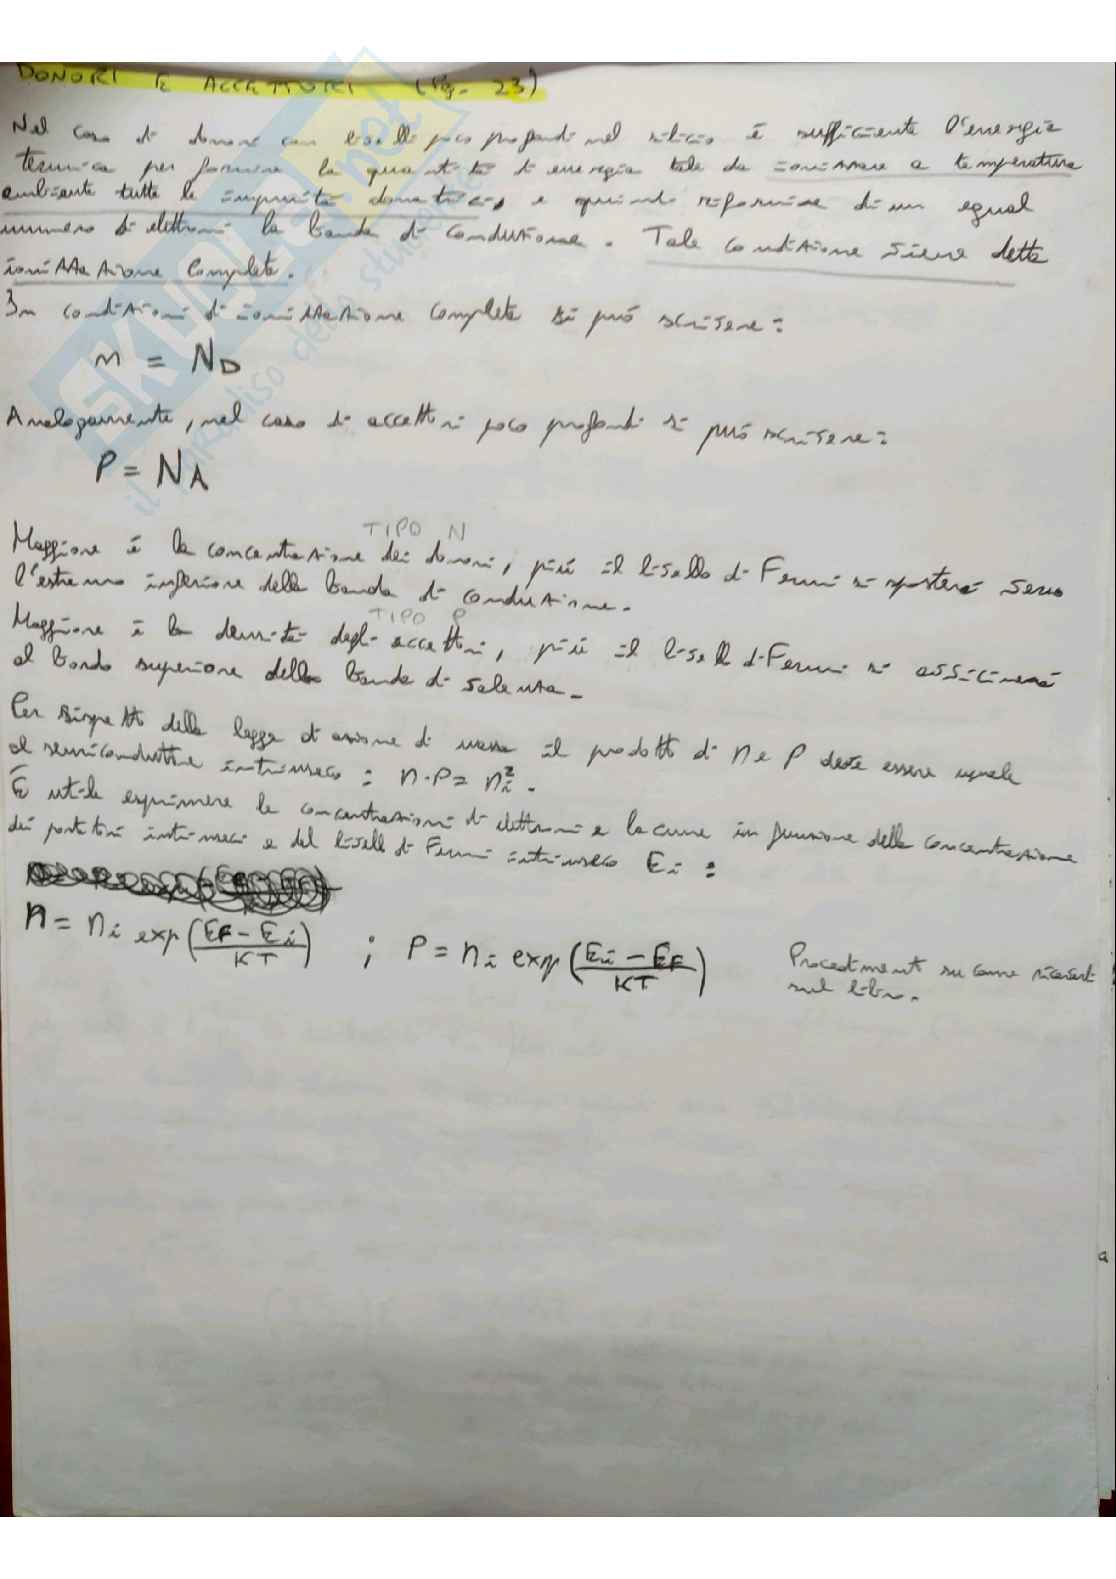 DONORI E ACCETTORI (Pg. 23)
Nel caso di donori con livelli poco profondi nel silicio è sufficiente l'energia
termica per fornire la quantità di energia tale da ionizzare a temperatura
ambiente tutte le impurità donatrici, e quindi rifornire di un egual
numero di elettroni la banda di conduzione. Tale condizione viene detta
ionizzazione completa.
In condizioni di ionizzazione completa si può scrivere:
n = ND
Analogamente, nel caso di accettori poco profondi si può scrivere:
P = NA
TIPO N
Maggiore è la concentrazione dei donori, più il livello di Fermi si sposterà verso
l'estremo inferiore della banda di conduzione.
TIPO P
Maggiore è la densità degli accettori, più il livello di Fermi si avvicinerà
al bordo superiore della banda di valenza.
Per rispetto della legge di azione di massa il prodotto di n e P deve essere uguale
al semiconduttore intrinseco: n·P = ni².
È utile esprimere le concentrazioni di elettroni e lacune in funzione della concentrazione
dei portatori intrinseci e del livello di Fermi intrinseco Ei :
n = ni exp((EF - Ei)/KT) ; P = ni exp((Ei - EF)/KT)
Procedimenti su come ricavarli
sul libro.
SKUOLA.net
il paradiso dello studente